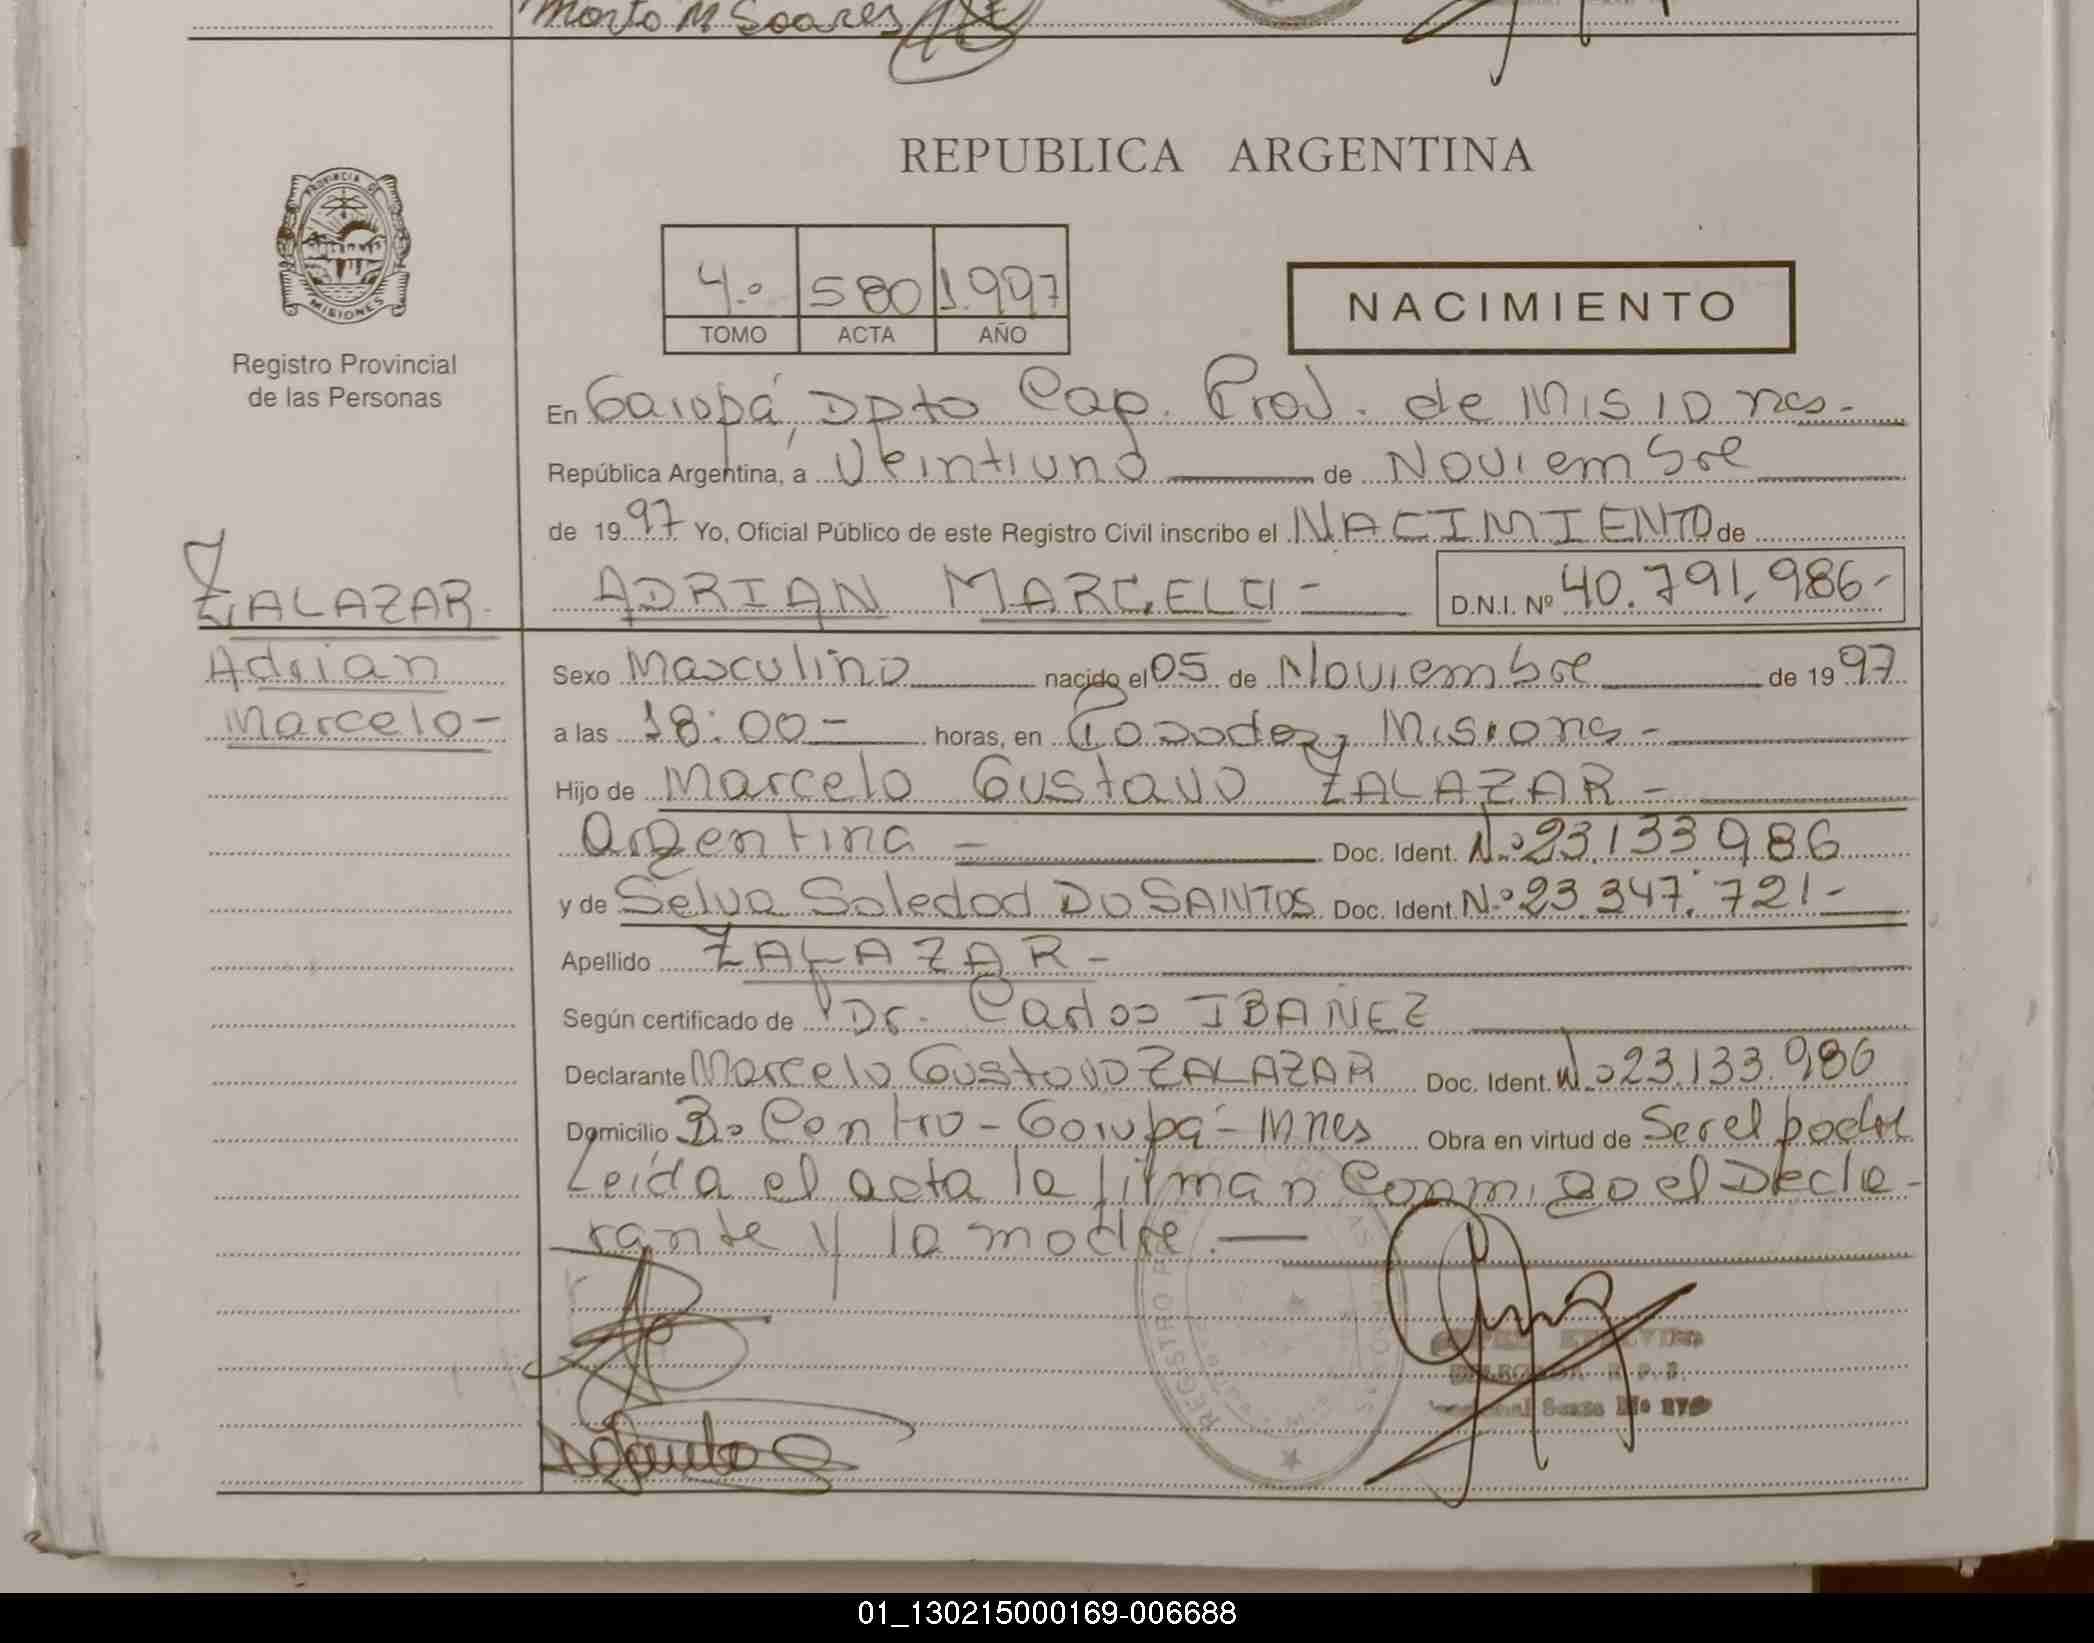 Marta M Soares
PROVINCIA DE
MISIONES
Registro Provincial
de las Personas
REPUBLICA ARGENTINA
4.º 580 1.997
TOMO ACTA AÑO
NACIMIENTO
En Garupá, Dpto Cap. Prov. de Misiones.-
República Argentina, a Veintiuno de Noviembre
de 1997 Yo, Oficial Público de este Registro Civil inscribo el NACIMIENTO de
ZALAZAR ADRIAN MARCELO - D.N.I. Nº 40.791.986-
Adrian
Marcelo-
Sexo Masculino nacido el 05 de Noviembre de 1997
a las 18:00- horas, en Posadas, Misiones -
Hijo de Marcelo Gustavo ZALAZAR -
Argentina - Doc. Ident. N.º 23.133 986
y de Selva Soledad DO SANTOS Doc. Ident. N.º 23.347.721-
Apellido ZALAZAR -
Según certificado de Dr. Carlos IBAÑEZ
Declarante Marcelo Gustavo ZALAZAR Doc. Ident. N.º 23.133.986
Domicilio Bº Centro - Garupá - Mnes Obra en virtud de Ser el padre
Leída el acta la firman conmigo el Decla-
rante y la madre.-
REGISTRO
01_130215000169-006688